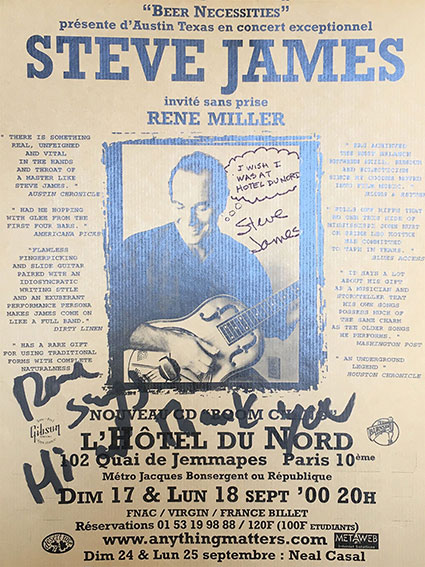 "BEER NECESSITIES"
présente d'Austin Texas en concert exceptionnel
STEVE JAMES
invité sans prise
RENE MILLER
" THERE IS SOMETHING
REAL, UNFEIGNED
AND VITAL
IN THE HANDS
AND THROAT OF
A MASTER LIKE
STEVE JAMES. "
AUSTIN CHRONICLE
" HAD ME BOPPING
WITH GLEE FROM THE
FIRST FOUR BARS. "
AMERICANA PICKS
"FLAWLESS
FINGERPICKING
AND SLIDE GUITAR
PAIRED WITH AN
IDIOSYNCRATIC
WRITING STYLE
AND AN EXUBERANT
PERFORMANCE PERSONA
MAKES JAMES COME ON
LIKE A FULL BAND."
DIRTY LINEN
" HAS A RARE GIFT
FOR USING TRADITIONAL
FORMS WITH COMPLETE
NATURALNESS
I WISH I
WAS AT
HOTEL DU NORD
Steve
James
" HAS ACHIEVED
THE BEST BALANCE
BETWEEN SKILL, HUMOUR
AND
BLUES ACCESS
" IT SAYS A LOT
ABOUT HIS GIFT
AS A MUSICIAN AND
STORYTELLER THAT
HIS OWN SONGS
POSSESS MUCH OF
THE SAME CHARM
AS THE OLDER SONGS
HE PERFORMS. "
WASHINGTON POST
" AN UNDERGROUND
LEGEND "
HOUSTON CHRONICLE
Thank you
NOUVEAU CD "BOOM
Gibson
L'HÔTEL DU NORD
102 Quai de Jemmapes Paris 10ème
Métro Jacques Bonsergent ou République
DIM 17 & LUN 18 SEPT '00 20H
FNAC / VIRGIN / FRANCE BILLET
Réservations 01 53 19 98 88 / 120F (100F ETUDIANTS)
www.anythingmatters.com
METAWEB
Dim 24 & Lun 25 septembre : Neal Casal